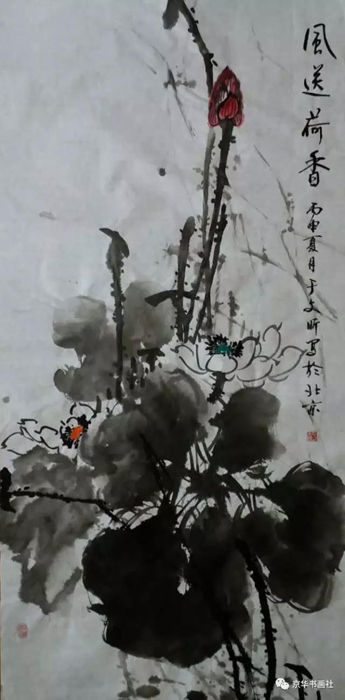 風送荷香
丙申夏月于文昕写於北京
京华书画社